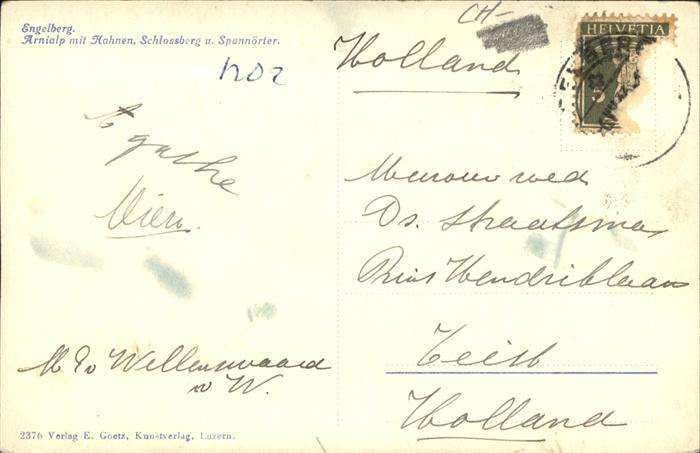 Engelberg.
Arnialp mit Hahnen, Schlossberg u. Spannörter.
CH-
Holland
HELVETIA
5
Agathe
Wien.
Mevrouw wed
Ds. Straatsma
Prins Hendriklaan
Zeist
Holland
v W.
2376 Verlag E. Goetz, Kunstverlag, Luzern.